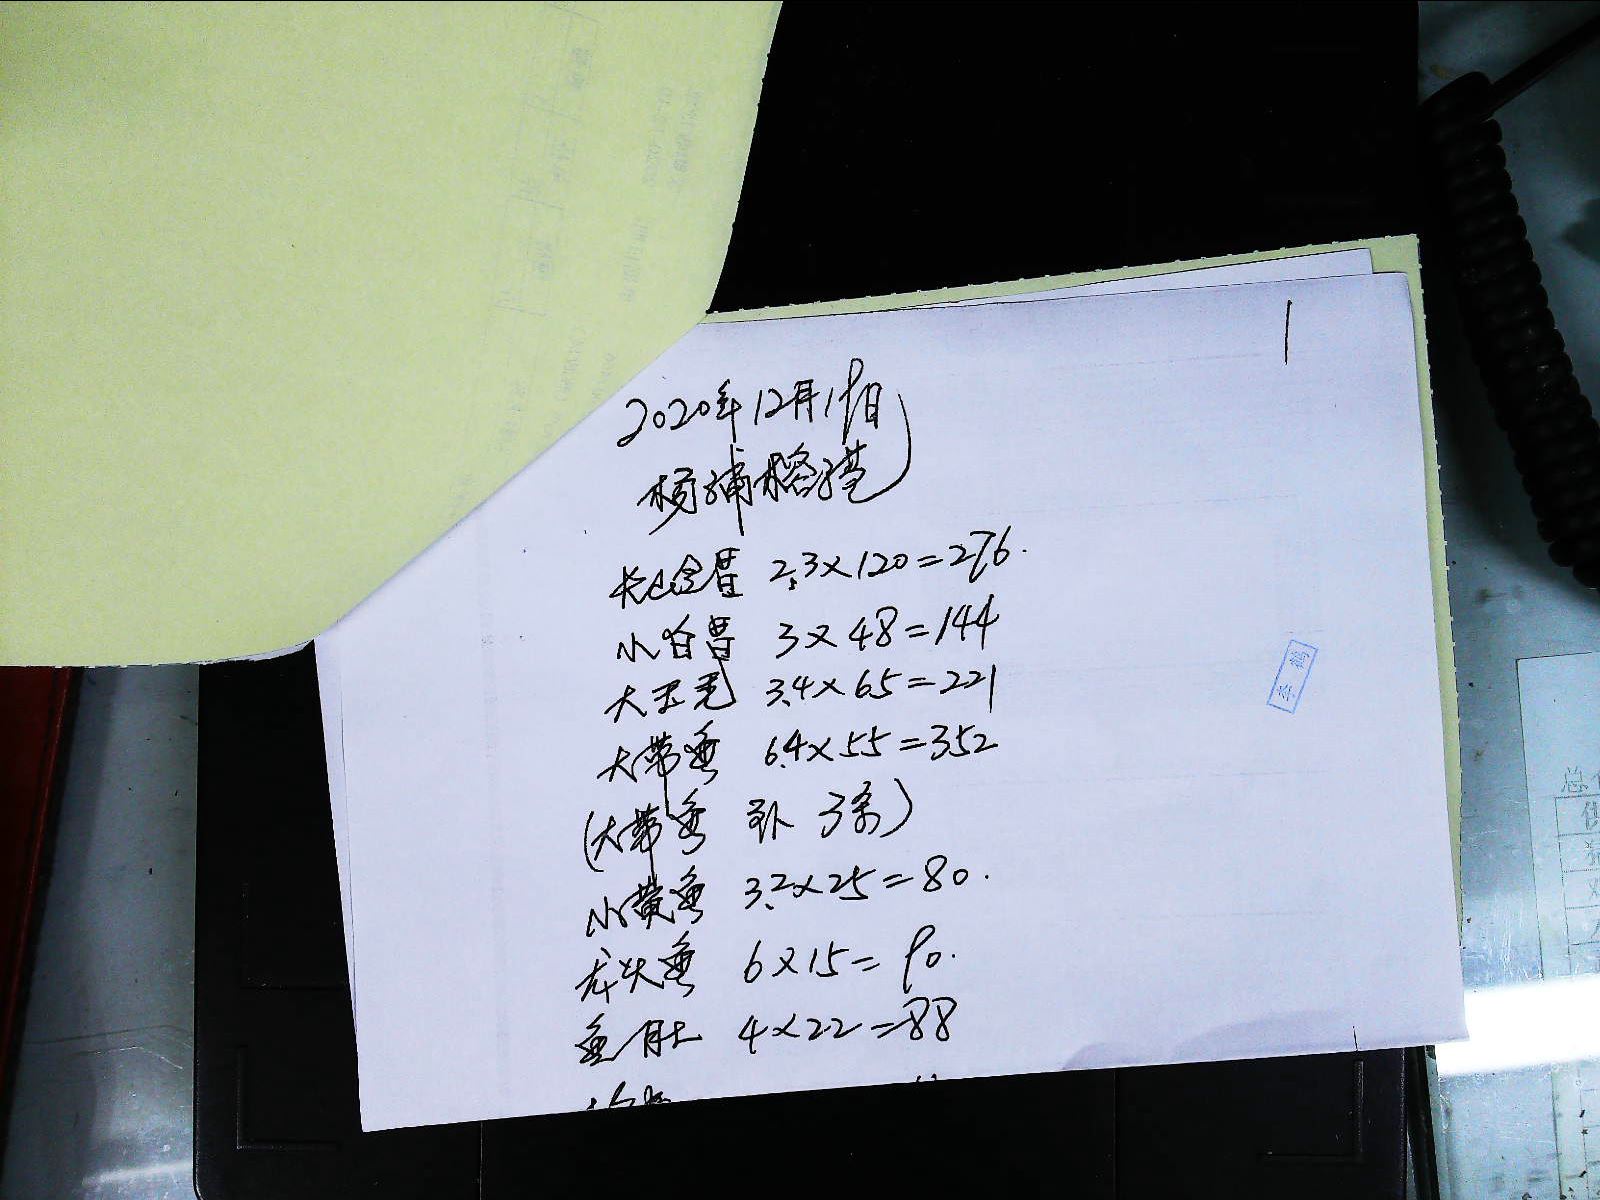 1
2020年12月19日
杨浦榕港
长江鲳 2.3×120=276.
小白鲳 3×48=144
大玉秃 3.4×65=221
大带鱼 6.4×55=352
(大带鱼 补 3条)
小黄鱼 3.2×25=80.
龙头鱼 6×15=90.
鱼肚 4×22=88
李鹤
总